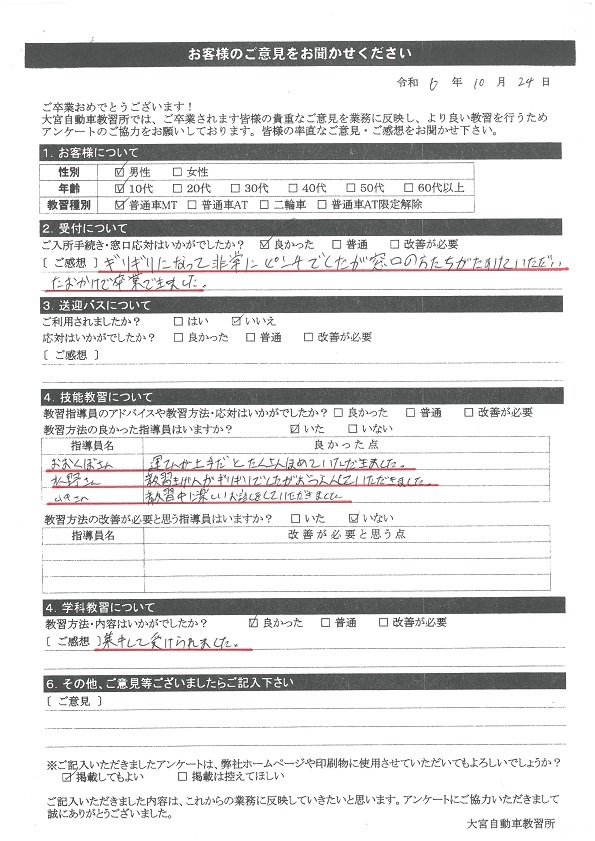 お客様のご意見をお聞かせください
令和 6 年 10 月 24 日
ご卒業おめでとうございます！
大宮自動車教習所では、ご卒業されます皆様の貴重なご意見を業務に反映し、より良い教習を行うため
アンケートのご協力をお願いしております。皆様の率直なご意見・ご感想をお聞かせ下さい。
1. お客様について
性別 ☑ 男性 □ 女性
年齢 ☑ 10代 □ 20代 □ 30代 □ 40代 □ 50代 □ 60代以上
教習種別 ☑ 普通車MT □ 普通車AT □ 二輪車 □ 普通車AT限定解除
2. 受付について
ご入所手続き・窓口応対はいかがでしたか？ ☑ 良かった □ 普通 □ 改善が必要
〔 ご感想 〕 ギリギリになって非常にピンチでしたが窓口の方たちがたすけていただい
たおかげで卒業できました。
3. 送迎バスについて
ご利用されましたか？ □ はい ☑ いいえ
応対はいかがでしたか？ □ 良かった □ 普通 □ 改善が必要
〔 ご感想 〕
4. 技能教習について
教習指導員のアドバイスや教習方法・応対はいかがでしたか？ □ 良かった □ 普通 □ 改善が必要
教習方法の良かった指導員はいますか？ ☑ いた □ いない
指導員名 良かった点
おおくぼさん 運てんが上手だとたくさんほめていただきました。
水野さん 教習きげんがぎりぎりでしたが
さん 教習中に楽しいお話をしていただきました
教習方法の改善が必要と思う指導員はいますか？ □ いた ☑ いない
指導員名 改善が必要と思う点
4. 学科教習について
教習方法・内容はいかがでしたか？ ☑ 良かった □ 普通 □ 改善が必要
〔 ご感想 〕 集中して受けられました。
6. その他、ご意見等ございましたらご記入下さい
〔 ご意見 〕
※ご記入いただきましたアンケートは、弊社ホームページや印刷物に使用させていただいてもよろしいでしょうか？
☑ 掲載してもよい □ 掲載は控えてほしい
ご記入いただきました内容は、これからの業務に反映していきたいと思います。アンケートにご協力いただきまして
誠にありがとうございました。
大宮自動車教習所